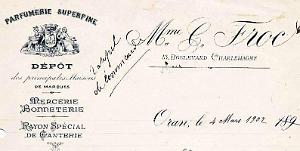 PARFUMERIE SUPERFINE
DÉPÔT
des principales Maisons
DE MARQUES
MERCERIE
BONNETERIE
RAYON SPÉCIAL
DE GANTERIE
Mme C. Froc
13, BOULEVARD CHARLEMAGNE
Oran, le 4 Mars 1902 189